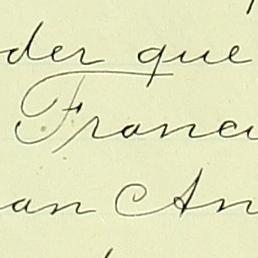 der que
Franci
an An